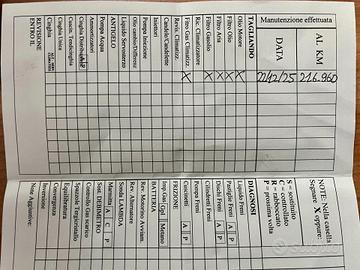 Manutenzione effettuata
AL KM
DATA
216.960
22/12/25
TAGLIANDO
Olio Motore
Filtro Olio
Filtro Aria
Filtro Gasolio
Ric. Climatizzatore
Filtro Gas Climatizz.
Revis. Climatizz.
Candele/Candelette
Iniettori
Pompa Iniezione
Olio cambio/Differenz
Liquido Servosterzo
ANTIGELO
Pompa Acqua
Ammortizzatori
Cinghia Distribuz.
Cus. Tendicinghia
Cinghia Unica
Cinghia
REVISIONE
ENTRO IL
NOTE: Nella casella
Segnare X oppure:
S = sostituito
C = controllato
R = ricaricato
P = prossima volta
DIAGNOSI
Liquido Freni
Pastiglie Freni A P
Dischi Freni A P
Pompa Freni
Cilindretti Freni
Cuscinetti A P
FRIZIONE
Imp. Gas Gpl Metano
BATTERIA
Rev. Motorino Avviam.
Rev. Alternatore
Sonda LAMBDA
Sost. DEBIMETRO
Marmitta A C P
Controllo Gas scarico
Spazzole Tergicristallo
Equilibratura
Convergenza
Inversione
Note Aggiuntive: